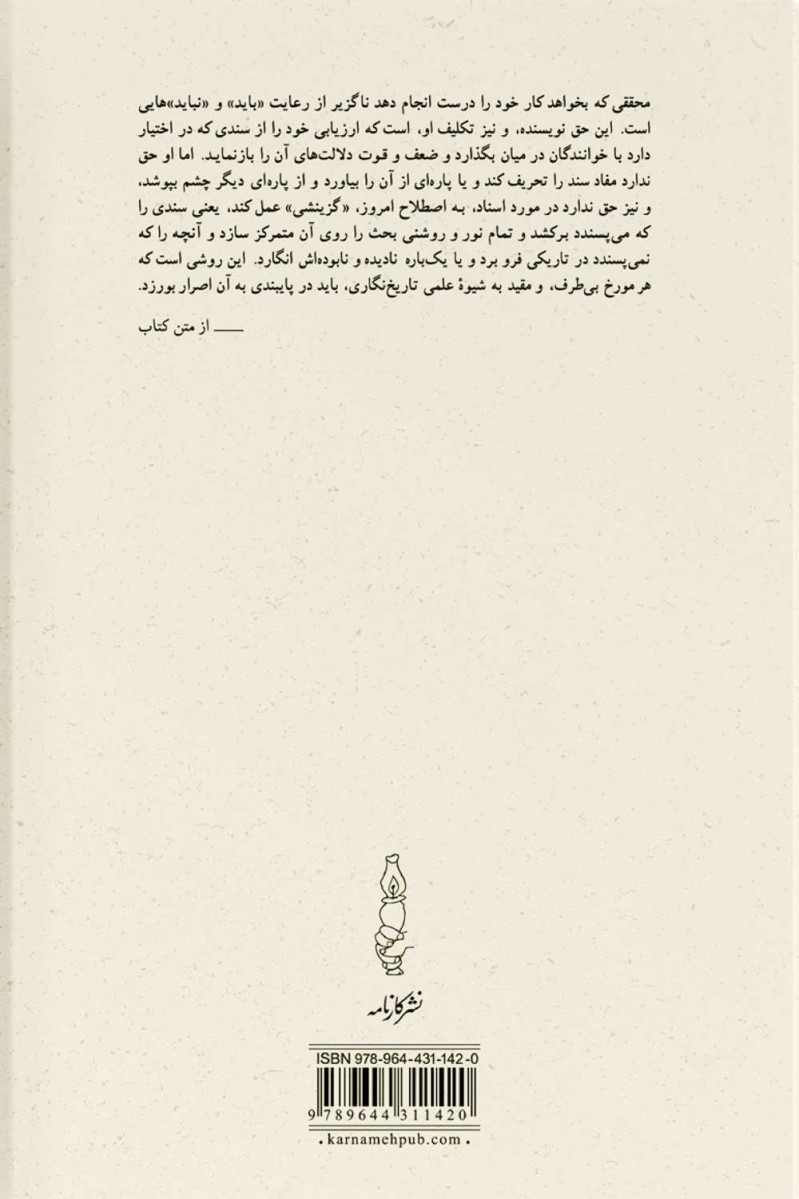 محققی که بخواهد کار خود را درست انجام دهد ناگزیر از رعایت «باید» و «نباید»هایی
است. این حق نویسنده، و نیز تکلیف او، است که ارزیابی خود را از سندی که در اختیار
دارد با خوانندگان در میان بگذارد و ضعف و قوت دلالت‌های آن را بازنماید. اما او حق
ندارد مفاد سند را تحریف کند و یا پاره‌ای از آن را بیاورد و از پاره‌ای دیگر چشم بپوشد،
و نیز حق ندارد در مورد اسناد، به اصطلاح امروز، «گزینشی» عمل کند، یعنی سندی را
که می‌پسندد برکشد و تمام نور و روشنی بحث را روی آن متمرکز سازد و آنچه را که
نمی‌پسندد در تاریکی فرو برد و یا یک‌باره نادیده و نابوده‌اش انگارد. این روشی است که
هر مورخ بی‌طرف، و مقید به شیوهٔ علمی تاریخ‌نگاری، باید در پایبندی به آن اصرار بورزد.
—— از متن کتاب
نشر کارنامه
ISBN 978-964-431-142-0
9 789644 311420
. karnamehpub.com .